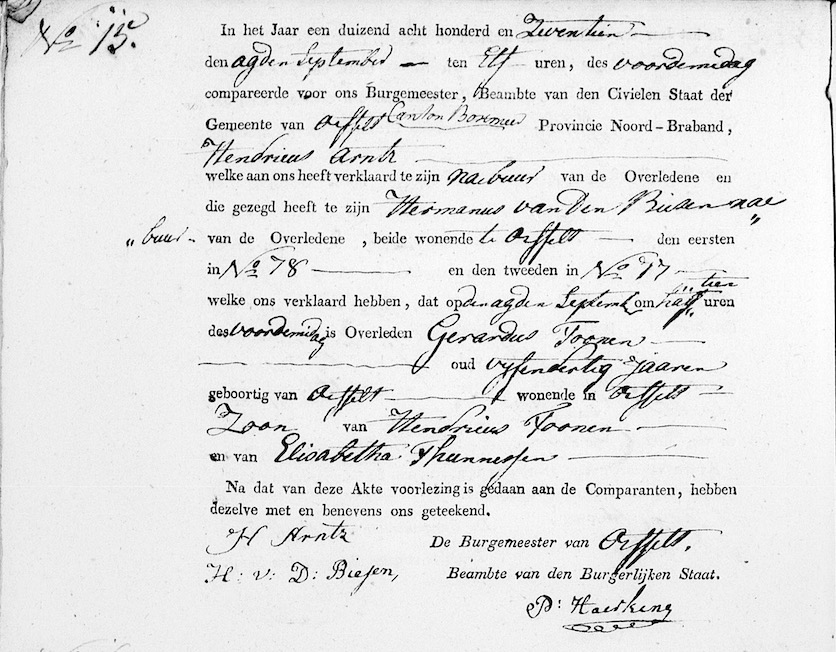 No 15.
In het Jaar een duizend acht honderd en Zeventien
den agden September ten Elf uren, des voordemedag
compareerde voor ons Burgemeester, Beambte van den Civielen Staat der
Gemeente van Oeffelt Canton Boxmeer Provincie Noord-Braband,
Hendricus Arntz
welke aan ons heeft verklaard te zijn naebuur van de Overledene en
die gezegd heeft te zijn Hermanus van Den Biesen nae
"buur van de Overledene, beide wonende te Oeffelt den eersten
in No 78 en den tweeden in No 17
welke ons verklaard hebben, dat op den agden Septemb om half tien uren
des voordemidag is Overleden Gerardus Toonen
oud vyfendertig Jaaren
geboortig van Oeffelt wonende in Oeffelt
Zoon van Hendricus Toonen
en van Elisabetha Thunnessen
Na dat van deze Akte voorlezing is gedaan aan de Comparanten, hebben
dezelve met en benevens ons geteekend.
H Arntz De Burgemeester van Oeffelt.
H: v: D: Biesen, Beambte van den Burgerlijken Staat.
P: Haerkeng